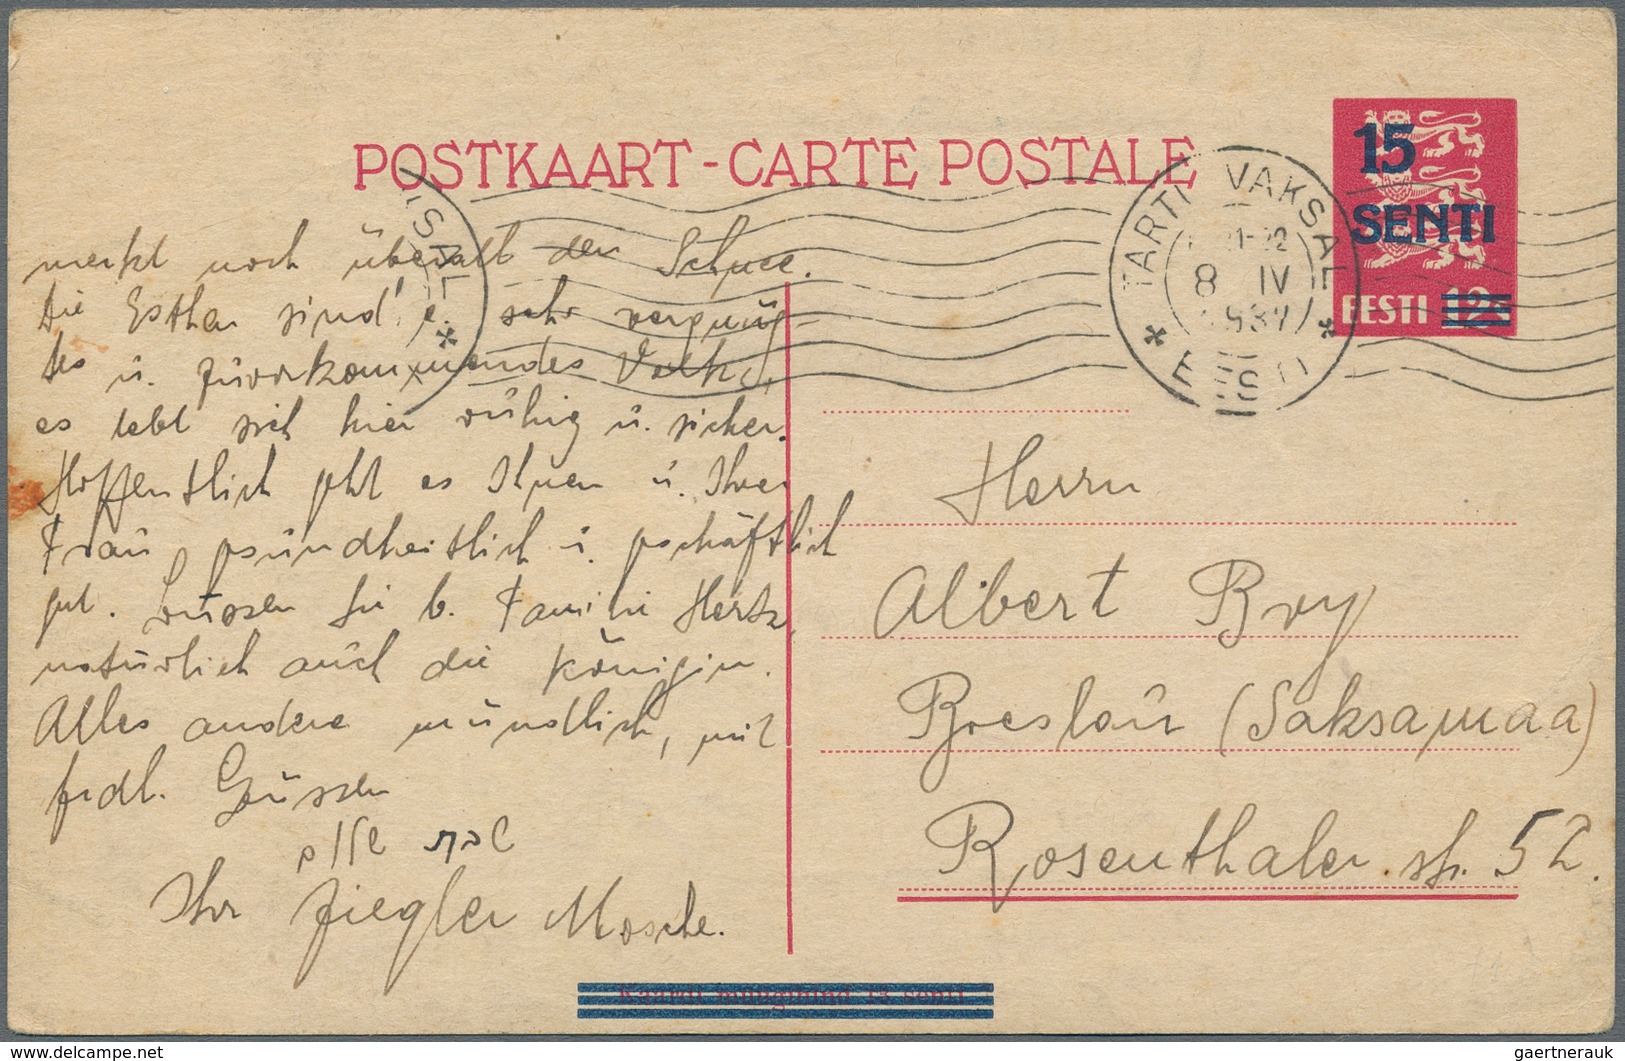 POSTKAART - CARTE POSTALE
15
SENTI
EESTI 12s
TARTU VAKSAL
21-22
8 IV
1937
* EESTI *
merkt noch überall den Schnee.
Die Esthen sind e. sehr vergnüg-
tes u. zuvorkommendes Volk,
es lebt sich hier ruhig u. sicher.
Hoffentlich geht es Ihnen u. Ihrer
Frau gesundheitlich u. geschäftlich
gut. Grüssen Sie b. Familie Hertz,
natürlich auch die Königin.
Alles andere mündlich, mit
frdl. Grüssen
Ihr Ziegler Mosche.
Herrn
Albert Bry
Breslau (Saksamaa)
Rosenthaler str. 52.
Kaardi müügihind 13 senti
www.delcampe.net
gaertnerauk